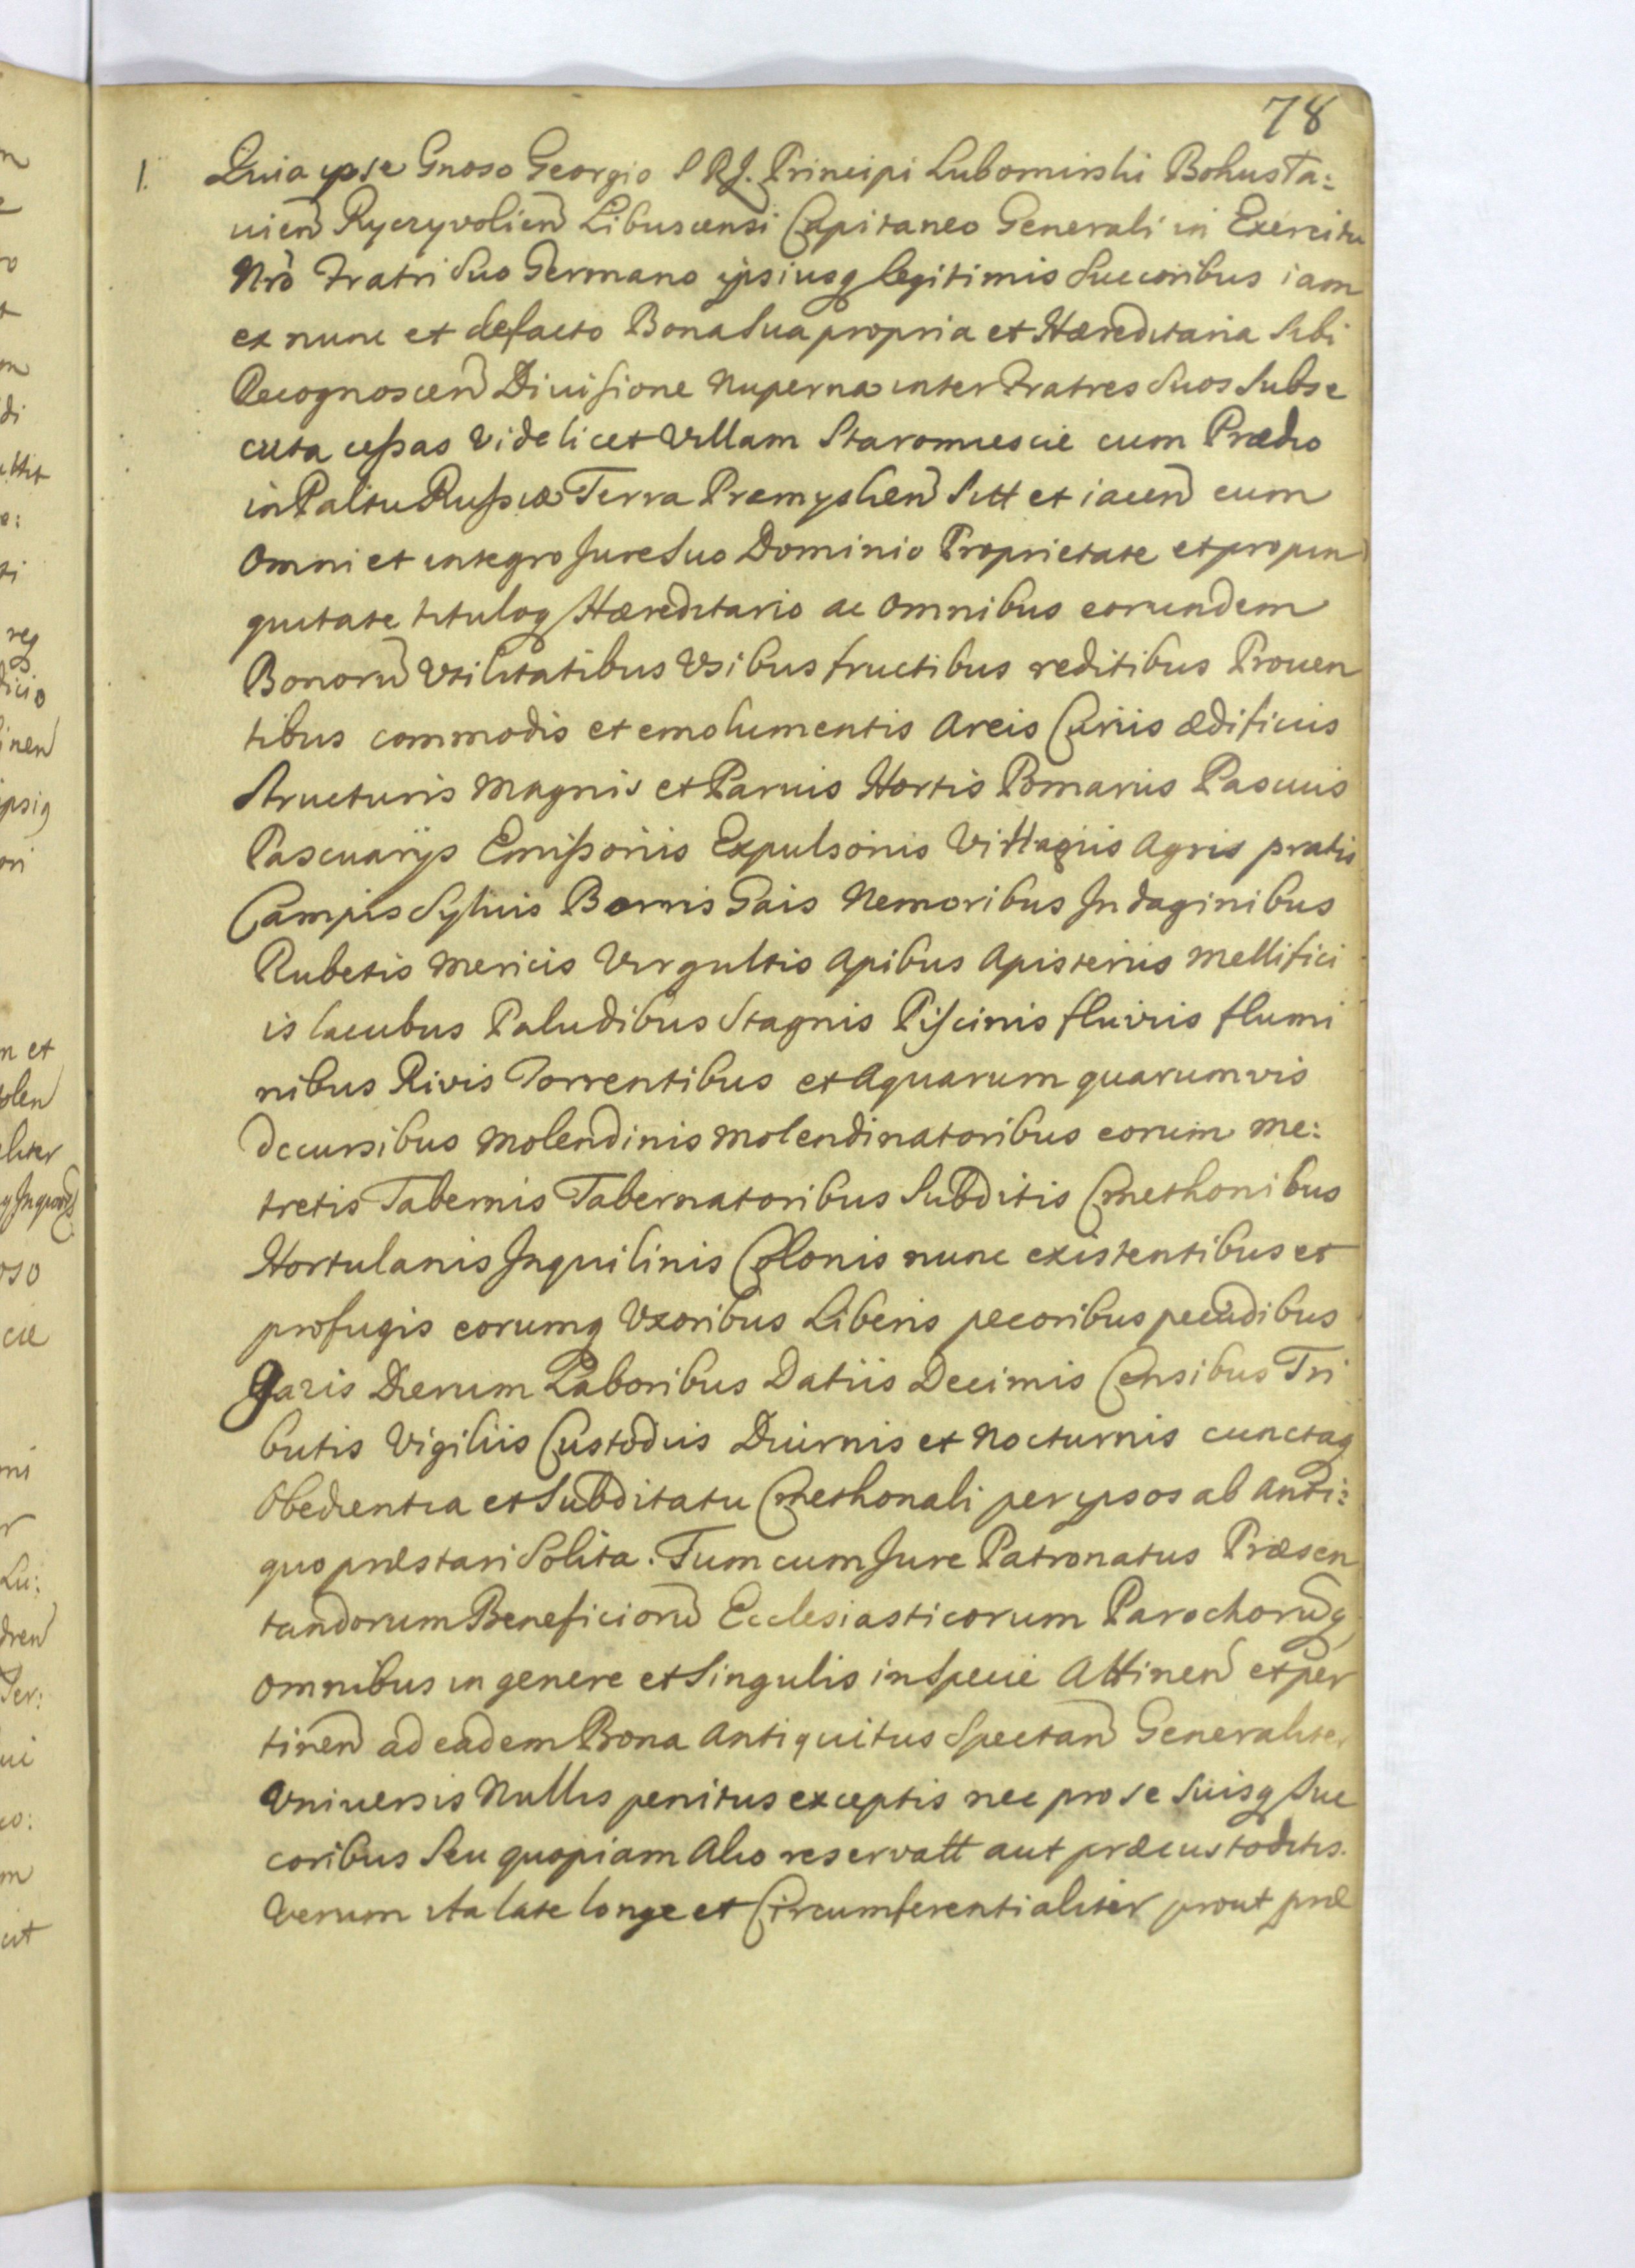 78
1. Quia ipse Gnoso Georgio S R J. Principi Lubomirski Bohusta:
uien Ryczyvolien Libuscensi Capitaneo Generali in Exercitu
Nro Fratri Suo Germano ipsiusq legitimis Succoribus iam
ex nunc et defacto Bona Sua propria et Hæreditaria Sibi
Recognoscen Diuisione Nuperna inter Fratres Suos Subse
cuta cessas Videlicet Villam Staromiescie cum Prædio
in Paltu Russiæ Terra Præmyslien Sitt et iacen cum
Omni et integro Jure Suo Dominio Proprietate et propin
quitate tituloq Hæreditario ac Omnibus eorundem
Bonoru Vtilitatibus Vsibus fructibus reditibus Prouen
tibus commodis et emolumentis Areis Curiis ædificiis
Structuris Magnis et Paruis Hortis Pomariis Pascuis
Pascuarijs Emissoriis Expulsoriis Vittagiis Agris pratis
Campis Syluis Borris Gais Nemoribus Indaginibus
Rubetis Mericis Virgultis Apibus Apisteriis Mellifici
is lacubus Paludibus Stagnis Piscinis fluviis flumi
nibus Rivis Torrentibus et Aquarum quarumvis
Dccursibus Molendinis Molendinatoribus eorum Me:
tretis Tabernis Tabernatoribus Subditis Cmethonibus
Hortulanis Inquilinis Colonis nunc existentibus et
profugis eorumq Vxoribus Liberis pecoribus pecudibus
Gazis Dierum Laboribus Datiis Decimis Censibus Tri
butis Vigiliis Custodiis Diurnis et Nocturnis cunctaq
Obedientia et Subditatu Cmethonali per ipsos ab Anti:
quo præstari Solita. Tum cum Jure Patronatus Præsen
tandorum Beneficioru Ecclesiasticorum Parochoruq
Omnibus in genere et Singulis in Specie Attinen et per
tinen ad eadem Bona Antiquitus Spectan Generaliter
Vniuersis Nullis penitus exceptis nec pro se Suisq Suc
coribus Seu quopiam Alio reservatt aut præcustoditis.
Verum ita late longe et Circumferentialiter prout præ